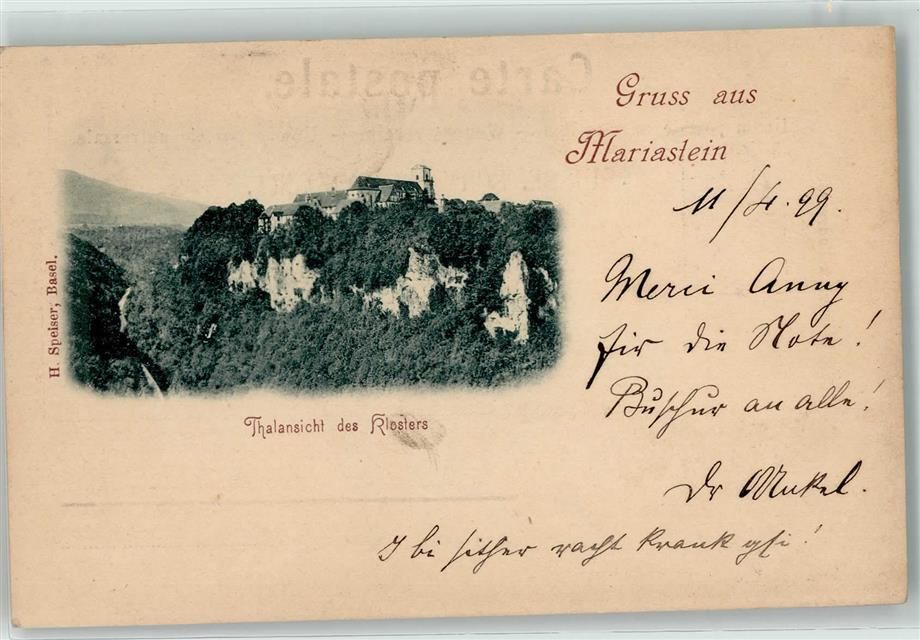 Carte postale.
Gruss aus
Mariastein
11/IV. 99.
Merci Anny
für die Note!
Buschur an alle!
Dr Unkel.
I bi sither racht krank gsi!
H. Speiser, Basel.
Thalansicht des Klosters